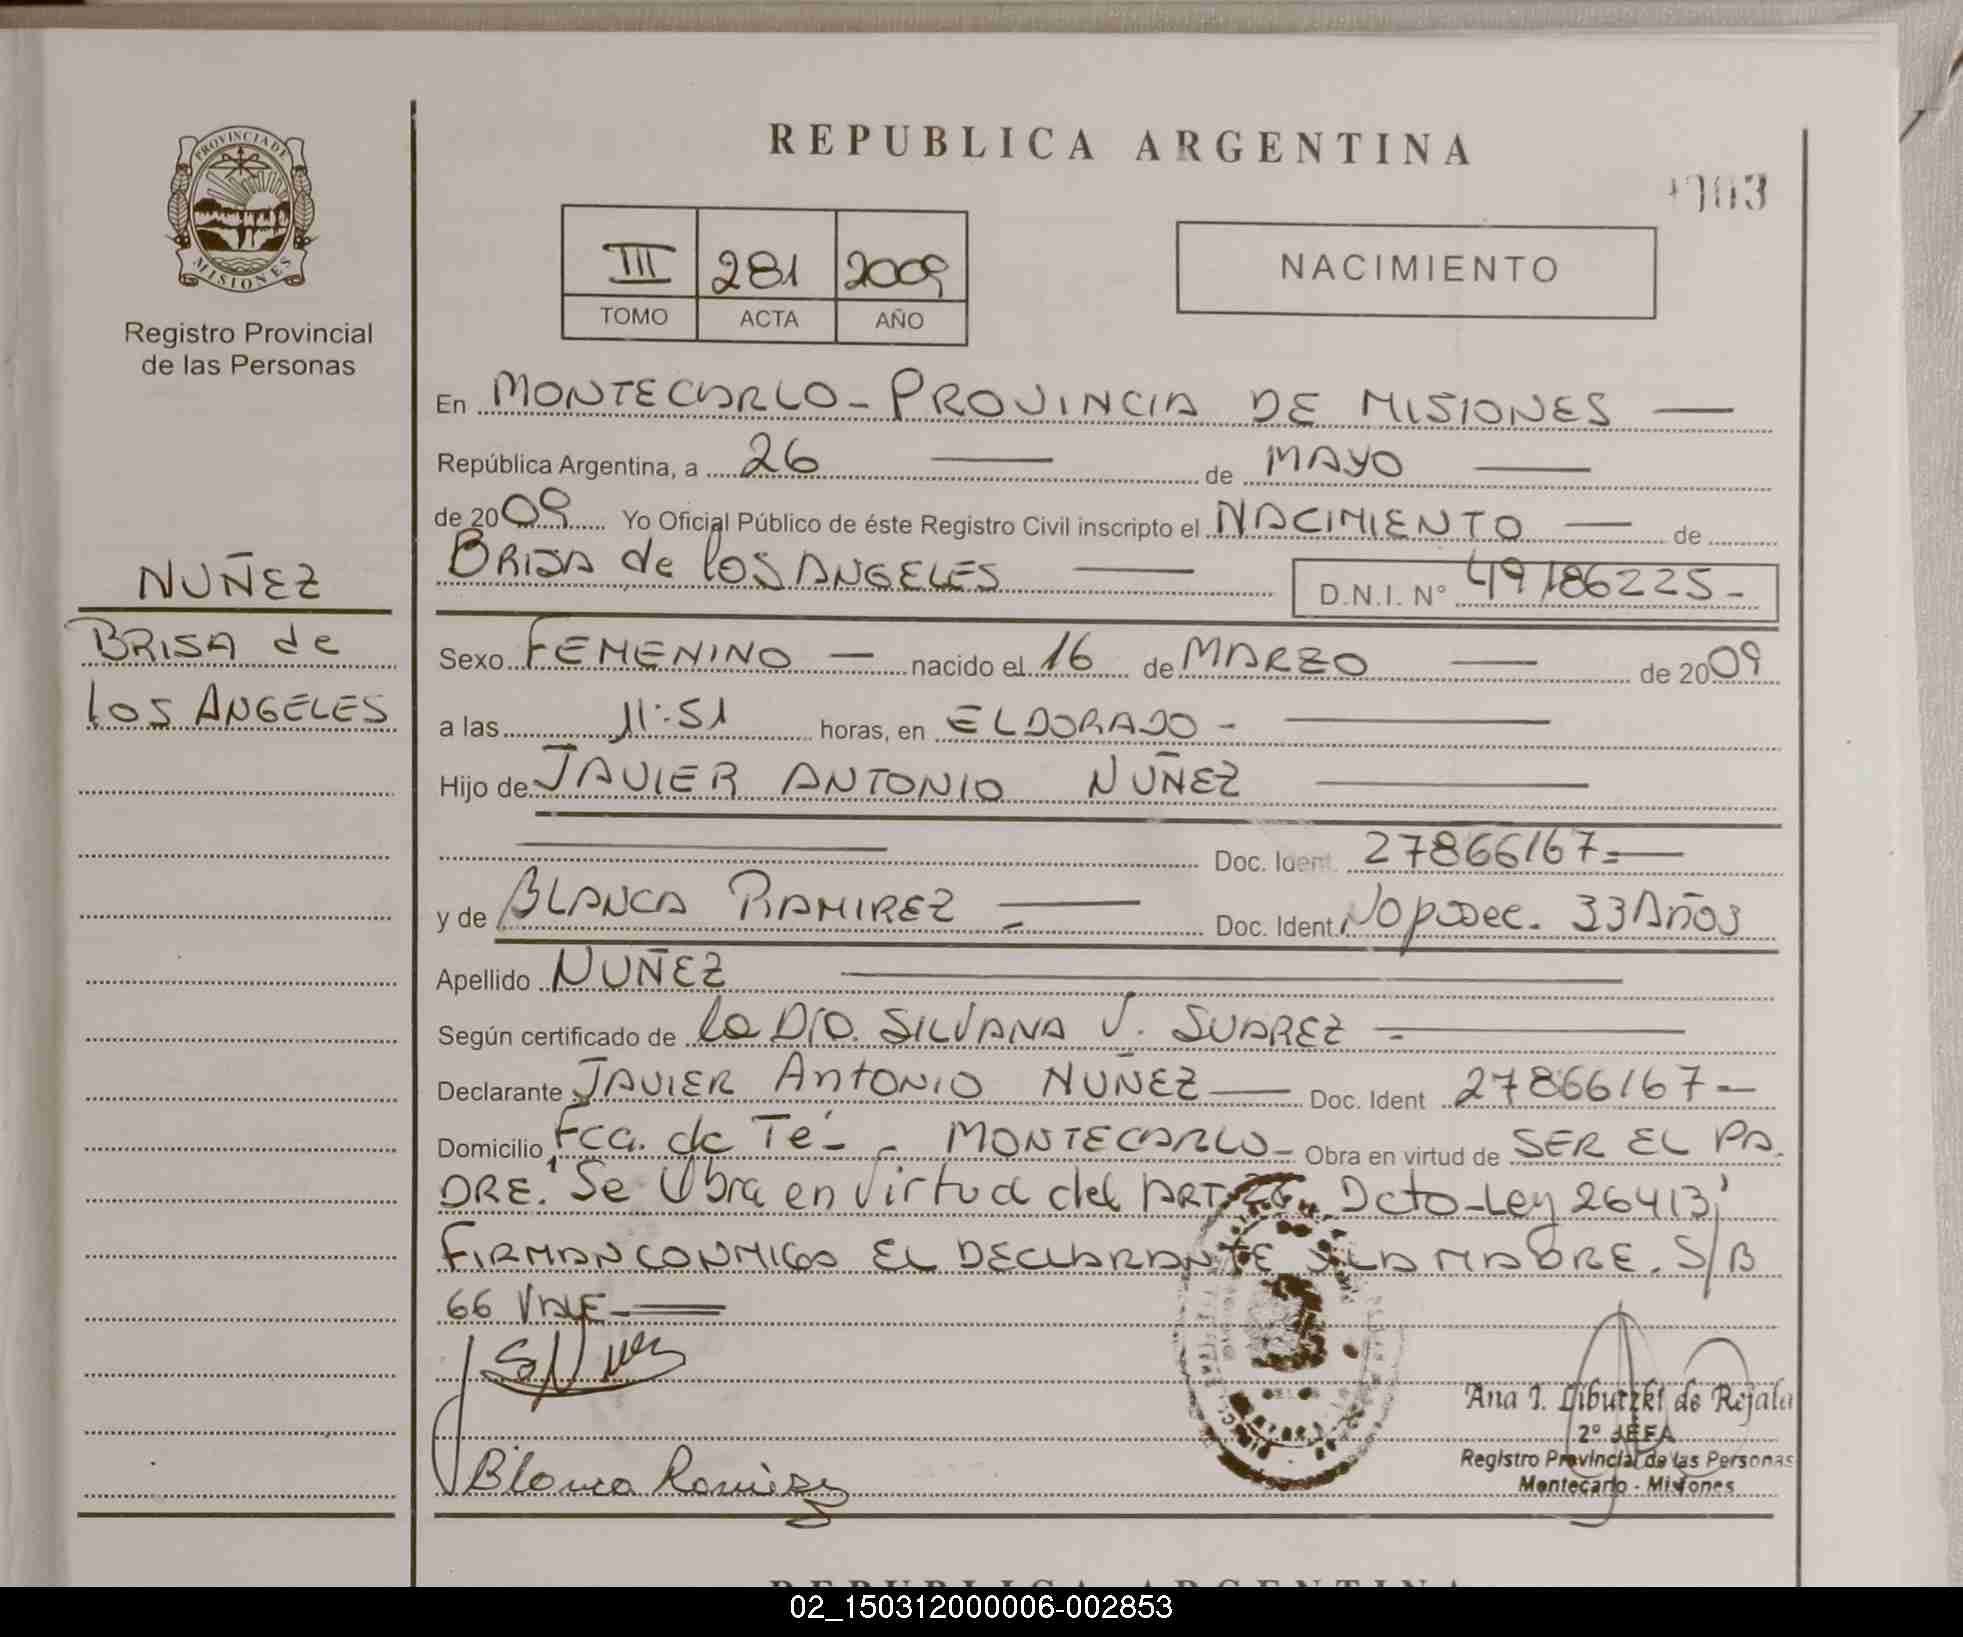 REPUBLICA ARGENTINA
PROVINCIA DE
MISIONES
Registro Provincial
de las Personas
III 281 2009
TOMO ACTA AÑO
NACIMIENTO
NUÑEZ
BRISA de
los ANGELES
En MONTECARLO - PROVINCIA DE MISIONES
República Argentina, a 26 de MAYO
de 2009 Yo Oficial Público de éste Registro Civil inscripto el NACIMIENTO de
BRISA de los ANGELES D.N.I. N° 49186225-
Sexo FEMENINO nacido el 16 de MARZO de 2009
a las 11:51 horas, en ELDORADO -
Hijo de JAVIER ANTONIO NUÑEZ
Doc. Ident. 27866167=
y de BLANCA RAMIREZ Doc. Ident. No posee. 33 Años
Apellido NUÑEZ
Según certificado de la SILVANA J. SUAREZ
Declarante JAVIER ANTONIO NUÑEZ Doc. Ident 27866167-
Domicilio Fca. de Té - MONTECARLO - Obra en virtud de SER EL PA
DRE. Se Obra en Virtud del ART. Dcto-Ley 26413;
FIRMAN CONMIGO EL DECLARANTE Y LA MADRE. S/B
66 VALE
Blanca Ramirez
Ana I. de Rejala
2° JEFA
Registro Provincial de las Personas
Montecarlo - Misiones
REPUBLICA ARGENTINA
02_150312000006-002853